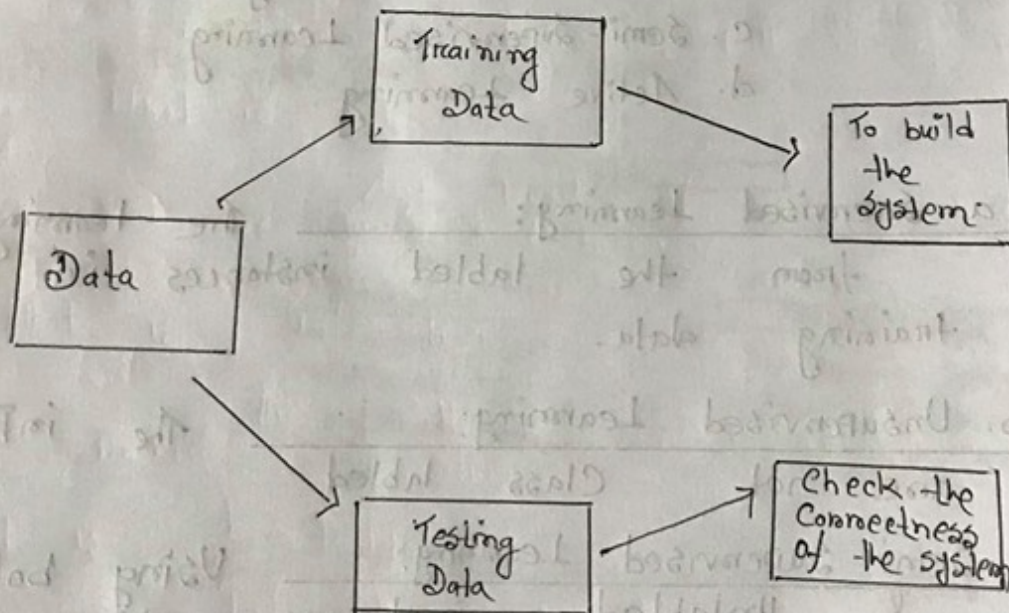 Training
Data
To build
the
system.
Data
Testing
Data
Check the
Correctness
of the system